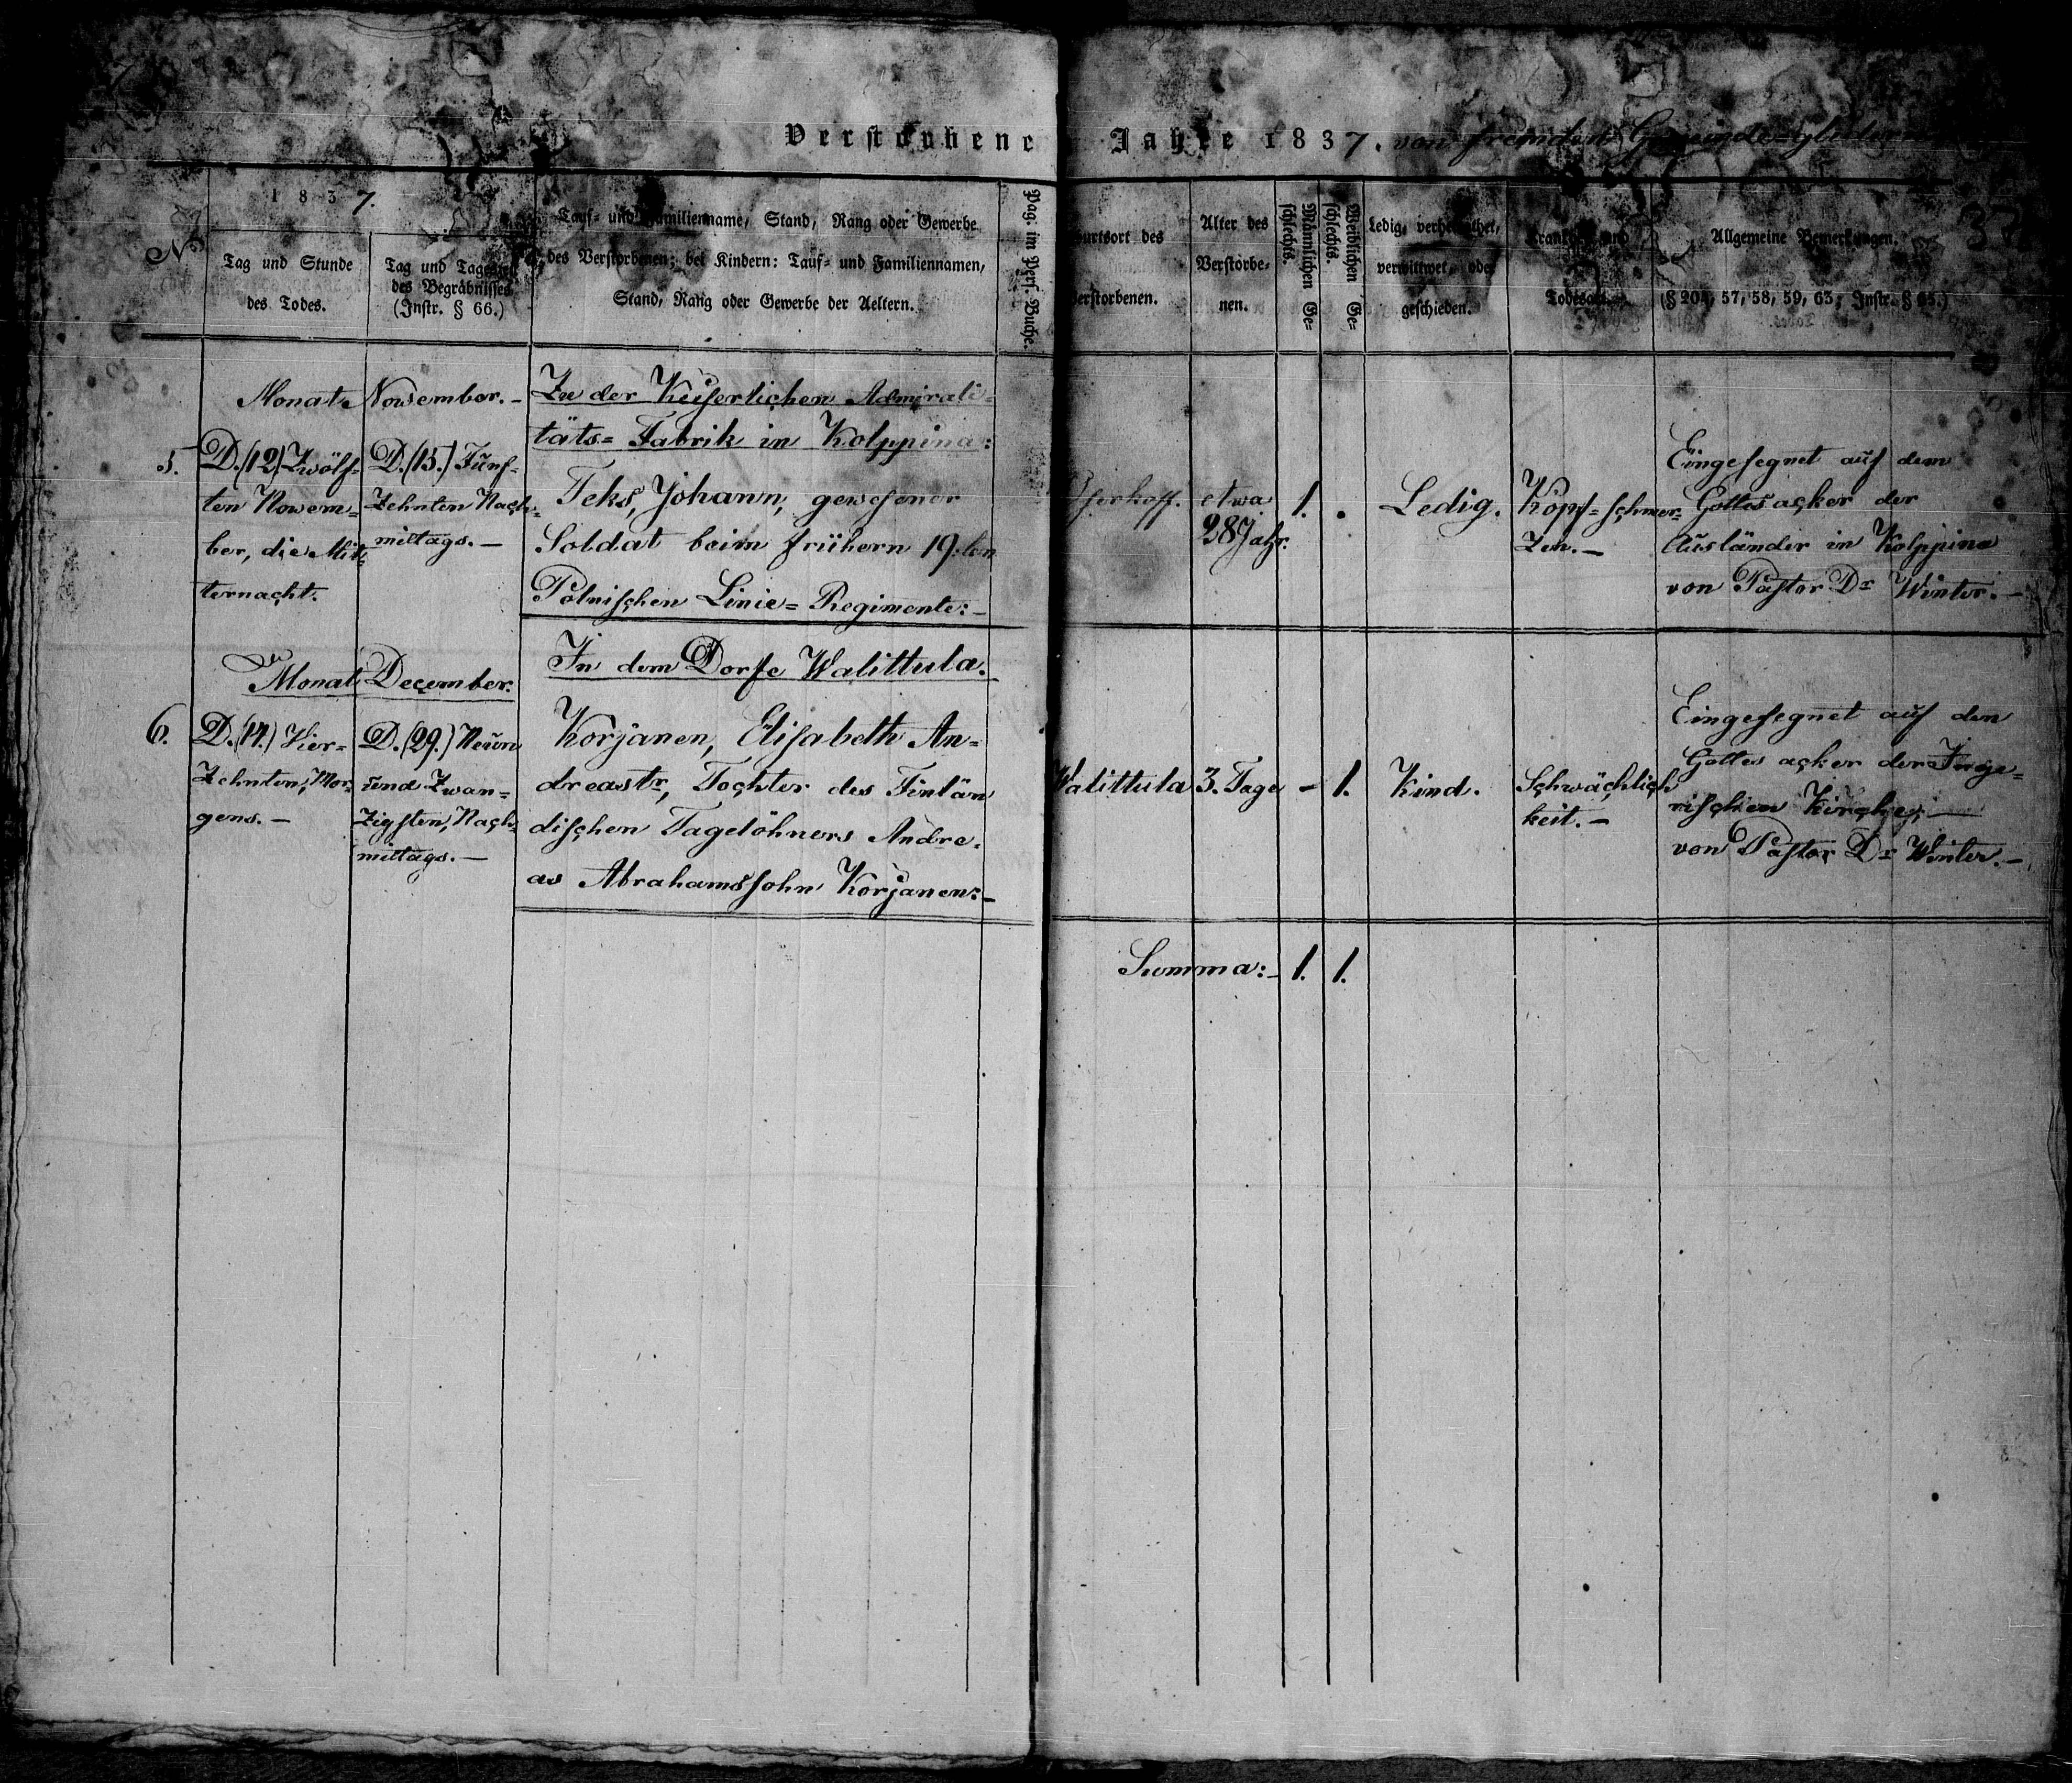 Verstorbene Jahre 1837. von fremden Gemeinde-Gliedern
1837.
Nº
Tag und Stunde
des Todes.
Tag und Tageszeit
des Begräbnisses
(Instr. § 66.)
Tauf- und Familienname, Stand, Rang oder Gewerbe
des Verstorbenen; bei Kindern: Tauf- und Familiennamen,
Stand, Rang oder Gewerbe der Aeltern.
Pag. im Pers. Buche.
urtsort des
erstorbenen.
Alter des
Verstorbe-
nen.
Männlichen Ge-
schlechts.
Weiblichen Ge-
schlechts.
Ledig, verheirathet,
verwittwet, oder
geschieden.
Krankheit und
Todesart.
Allgemeine Bemerkungen.
(§ 204, 57, 58, 59, 63; Instr. § 65.)
Monat November.-
Zu der Keiserlichen Admirali-
täts-Fabrik in Kolppina:
5.
D.(12) Zwölf-
ten Novem-
ber, die Mit-
ternacht.
D.(15.) Fünf-
zehnten Nach-
mittags.-
Teks, Johann, gewesener
Soldat beim frühern 19:ten
Polnischen Linie-Regimente:-
etwa
28 Jahr.
1.
.
Ledig.
Kopf-schmer-
zen.-
Eingesegnet auf dem
Gottesacker der
Ausländer in Kolppina
von Pastor Dr Winter.-
Monat December.
In dem Dorfe Walittula.
6.
D.(14.) Vier-
zehnten, Mor-
gens.-
D.(29.) Neun
und zwan-
zigsten, Nach-
mittags.-
Korjanen, Elisabeth An-
dreastr, Tochter des Finlän
dischen Tagelöhners Andre-
as Abrahamssohn Korjanen:-
Walittula
3. Tage
-
1.
Kind.
Schwächlich
keit.-
Eingesegnet auf den
Gottes acker der Inge-
rischen Kirche,-
von Pastor Dr Winter.-
Summa:- 1. 1.